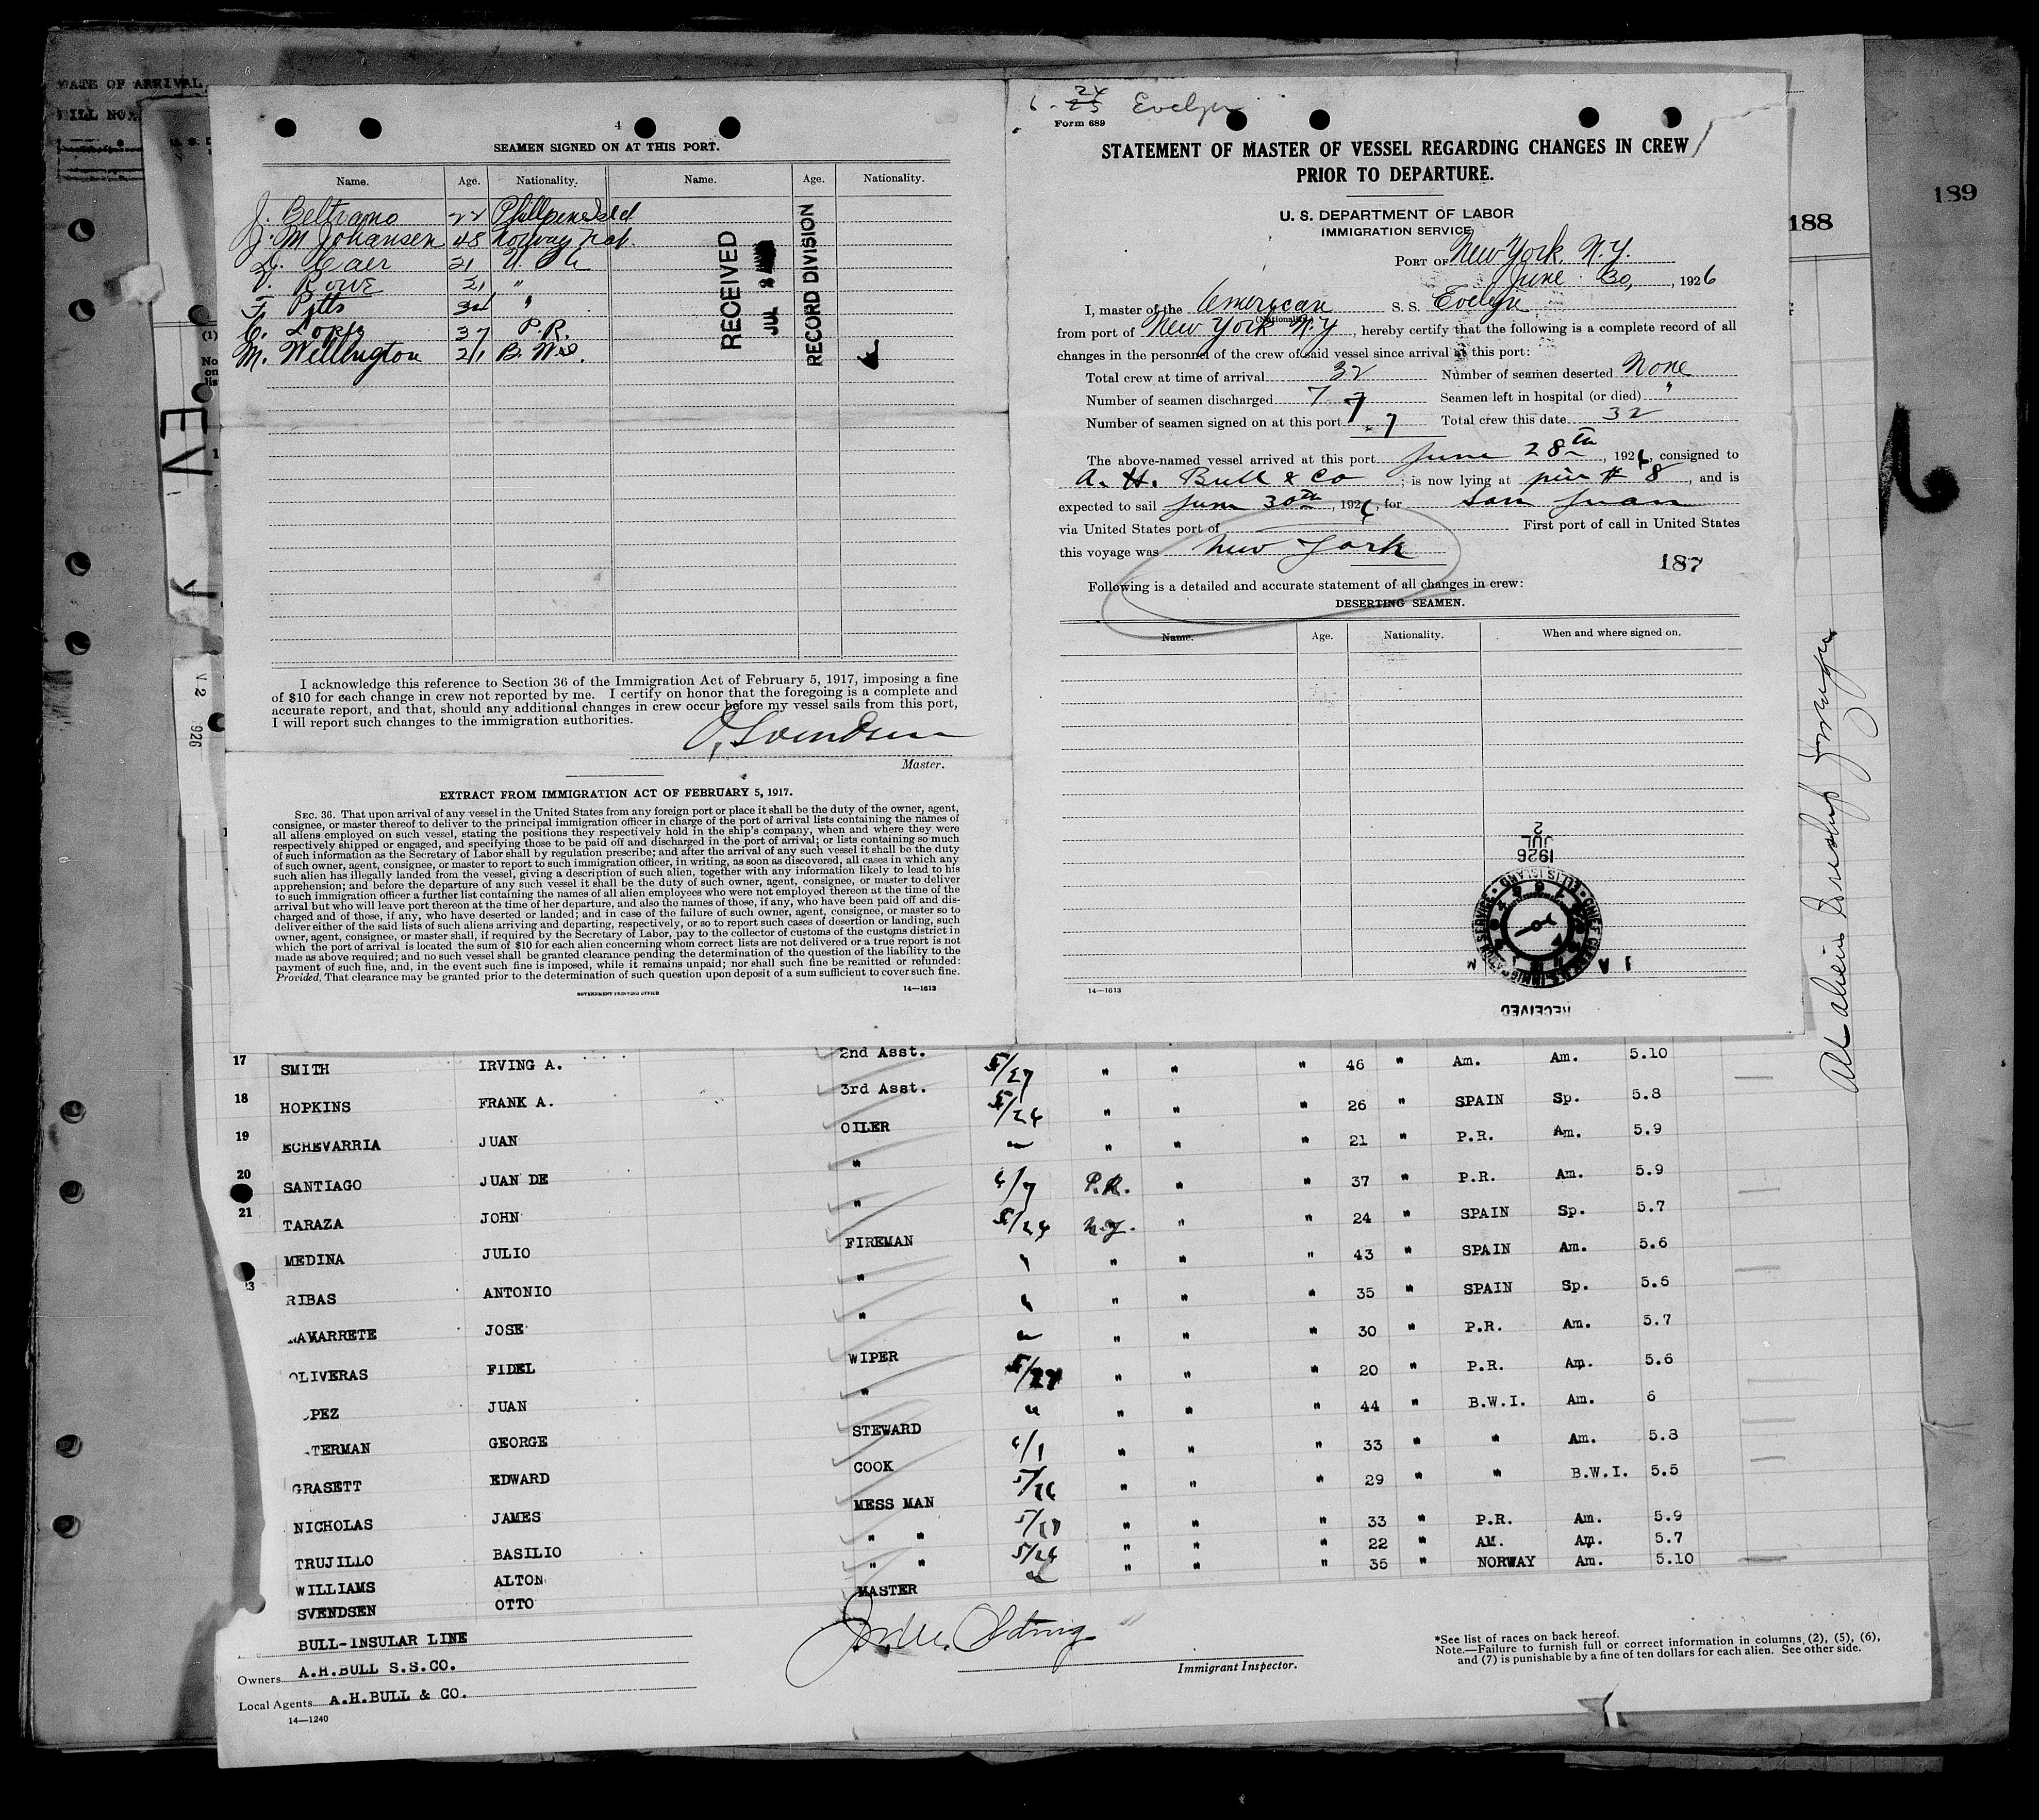 DATE OF ARRIVAL
189
188
4
SEAMEN SIGNED ON AT THIS PORT.
Name. Age. Nationality. Name. Age. Nationality.
J. Beltramo 22
J. M. Johansen 45 Norway Nat.
D. 21
V. Rowe 21 "
F. Pitts 34 "
C. Lopez 37 P.R.
M. Wellington 21 B. W.I.
RECEIVED
JUL
RECORD DIVISION
I acknowledge this reference to Section 36 of the Immigration Act of February 5, 1917, imposing a fine
of $10 for each change in crew not reported by me. I certify on honor that the foregoing is a complete and
accurate report, and that, should any additional changes in crew occur before my vessel sails from this port,
I will report such changes to the immigration authorities.
O. Svendsen
Master.
EXTRACT FROM IMMIGRATION ACT OF FEBRUARY 5, 1917.
SEC. 36. That upon arrival of any vessel in the United States from any foreign port or place it shall be the duty of the owner, agent,
consignee, or master thereof to deliver to the principal immigration officer in charge of the port of arrival lists containing the names of
all aliens employed on such vessel, stating the positions they respectively hold in the ship's company, when and where they were
respectively shipped or engaged, and specifying those to be paid off and discharged in the port of arrival; or lists containing so much
of such information as the Secretary of Labor shall by regulation prescribe; and after the arrival of any such vessel it shall be the duty
of such owner, agent, consignee, or master to report to such immigration officer, in writing, as soon as discovered, all cases in which any
such alien has illegally landed from the vessel, giving a description of such alien, together with any information likely to lead to his
apprehension; and before the departure of any such vessel it shall be the duty of such owner, agent, consignee, or master to deliver
to such immigration officer a further list containing the names of all alien employees who were not employed thereon at the time of the
arrival but who will leave port thereon at the time of her departure, and also the names of those, if any, who have been paid off and dis-
charged and of those, if any, who have deserted or landed; and in case of the failure of such owner, agent, consignee, or master so to
deliver either of the said lists of such aliens arriving and departing, respectively, or so to report such cases of desertion or landing, such
owner, agent, consignee, or master shall, if required by the Secretary of Labor, pay to the collector of customs of the customs district in
which the port of arrival is located the sum of $10 for each alien concerning whom correct lists are not delivered or a true report is not
made as above required; and no such vessel shall be granted clearance pending the determination of the question of the liability to the
payment of such fine, and, in the event such fine is imposed, while it remains unpaid; nor shall such fine be remitted or refunded:
Provided, That clearance may be granted prior to the determination of such question upon deposit of a sum sufficient to cover such fine.
GOVERNMENT PRINTING OFFICE
14—1613
6 - 24 25 Evelyn
Form 689
STATEMENT OF MASTER OF VESSEL REGARDING CHANGES IN CREW
PRIOR TO DEPARTURE.
U. S. DEPARTMENT OF LABOR
IMMIGRATION SERVICE
PORT OF New York, N.Y.
June 30, 1926
I, master of the American S. S. Evelyn
(Nationality)
from port of New York N.Y, hereby certify that the following is a complete record of all
changes in the personnel of the crew of said vessel since arrival at this port:
Total crew at time of arrival 32 Number of seamen deserted None
Number of seamen discharged 7 7 Seamen left in hospital (or died) "
Number of seamen signed on at this port 7 Total crew this date 32
The above-named vessel arrived at this port June 28th, 1926, consigned to
A. H. Bull & Co; is now lying at pier # 8, and is
expected to sail June 30th, 1926, for San Juan
via United States port of First port of call in United States
this voyage was New York
187
Following is a detailed and accurate statement of all changes in crew:
DESERTING SEAMEN.
Name. Age. Nationality. When and where signed on.
1926
JUL
2
ELLIS ISLAND
RECEIVED
14—1613
17 SMITH IRVING A. 2nd Asst. 5/27 " " " 46 " Am. Am. 5.10
18 HOPKINS FRANK A. 3rd Asst. 5/24 " " " 26 " SPAIN Sp. 5.8
19 ECHEVARRIA JUAN OILER " " " " 21 " P.R. Am. 5.9
20 SANTIAGO JUAN DE " 6/7 P.R. " " 37 " P.R. Am. 5.9
21 TARAZA JOHN " 5/24 N.Y. " " 24 " SPAIN Sp. 5.7
MEDINA JULIO FIREMAN " " " " 43 " SPAIN Am. 5.6
RIBAS ANTONIO " " " " " 35 " SPAIN Sp. 5.6
NAVARRETE JOSE " " " " " 30 " P.R. Am. 5.7
OLIVERAS FIDEL WIPER " " " 20 " P.R. Am. 5.6
OPEZ JUAN " " " " " 44 " B.W.I. Am. 6
TERMAN GEORGE STEWARD 6/1 " " " 33 " " Am. 5.8
GRASETT EDWARD COOK 5/26 " " " 29 " " B.W.I. 5.5
NICHOLAS JAMES MESS MAN " " " 33 " P.R. Am. 5.9
TRUJILLO BASILIO " " 5/26 " " " 22 " AM. Am. 5.7
WILLIAMS ALTON " " " " " 35 " NORWAY Am. 5.10
SVENDSEN OTTO MASTER
BULL-INSULAR LINE
Owners A.H.BULL S.S.CO.
Local Agents A.H.BULL & CO.
14—1240
Immigrant Inspector.
*See list of races on back hereof.
Note.—Failure to furnish full or correct information in columns (2), (5), (6),
and (7) is punishable by a fine of ten dollars for each alien. See other side.